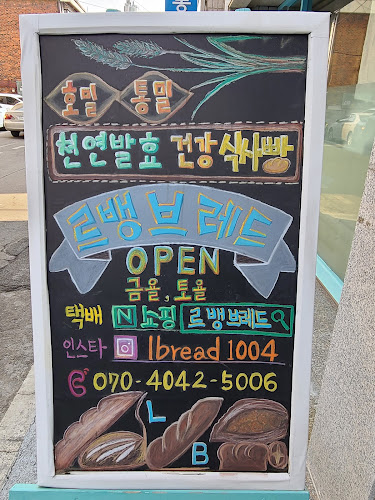 호밀 통밀
천연발효 건강식사빵
르뱅브레드
OPEN
금욜, 토욜
택배 N쇼핑 르뱅브레드
인스타 lbread1004
070-4042-5006
L
B